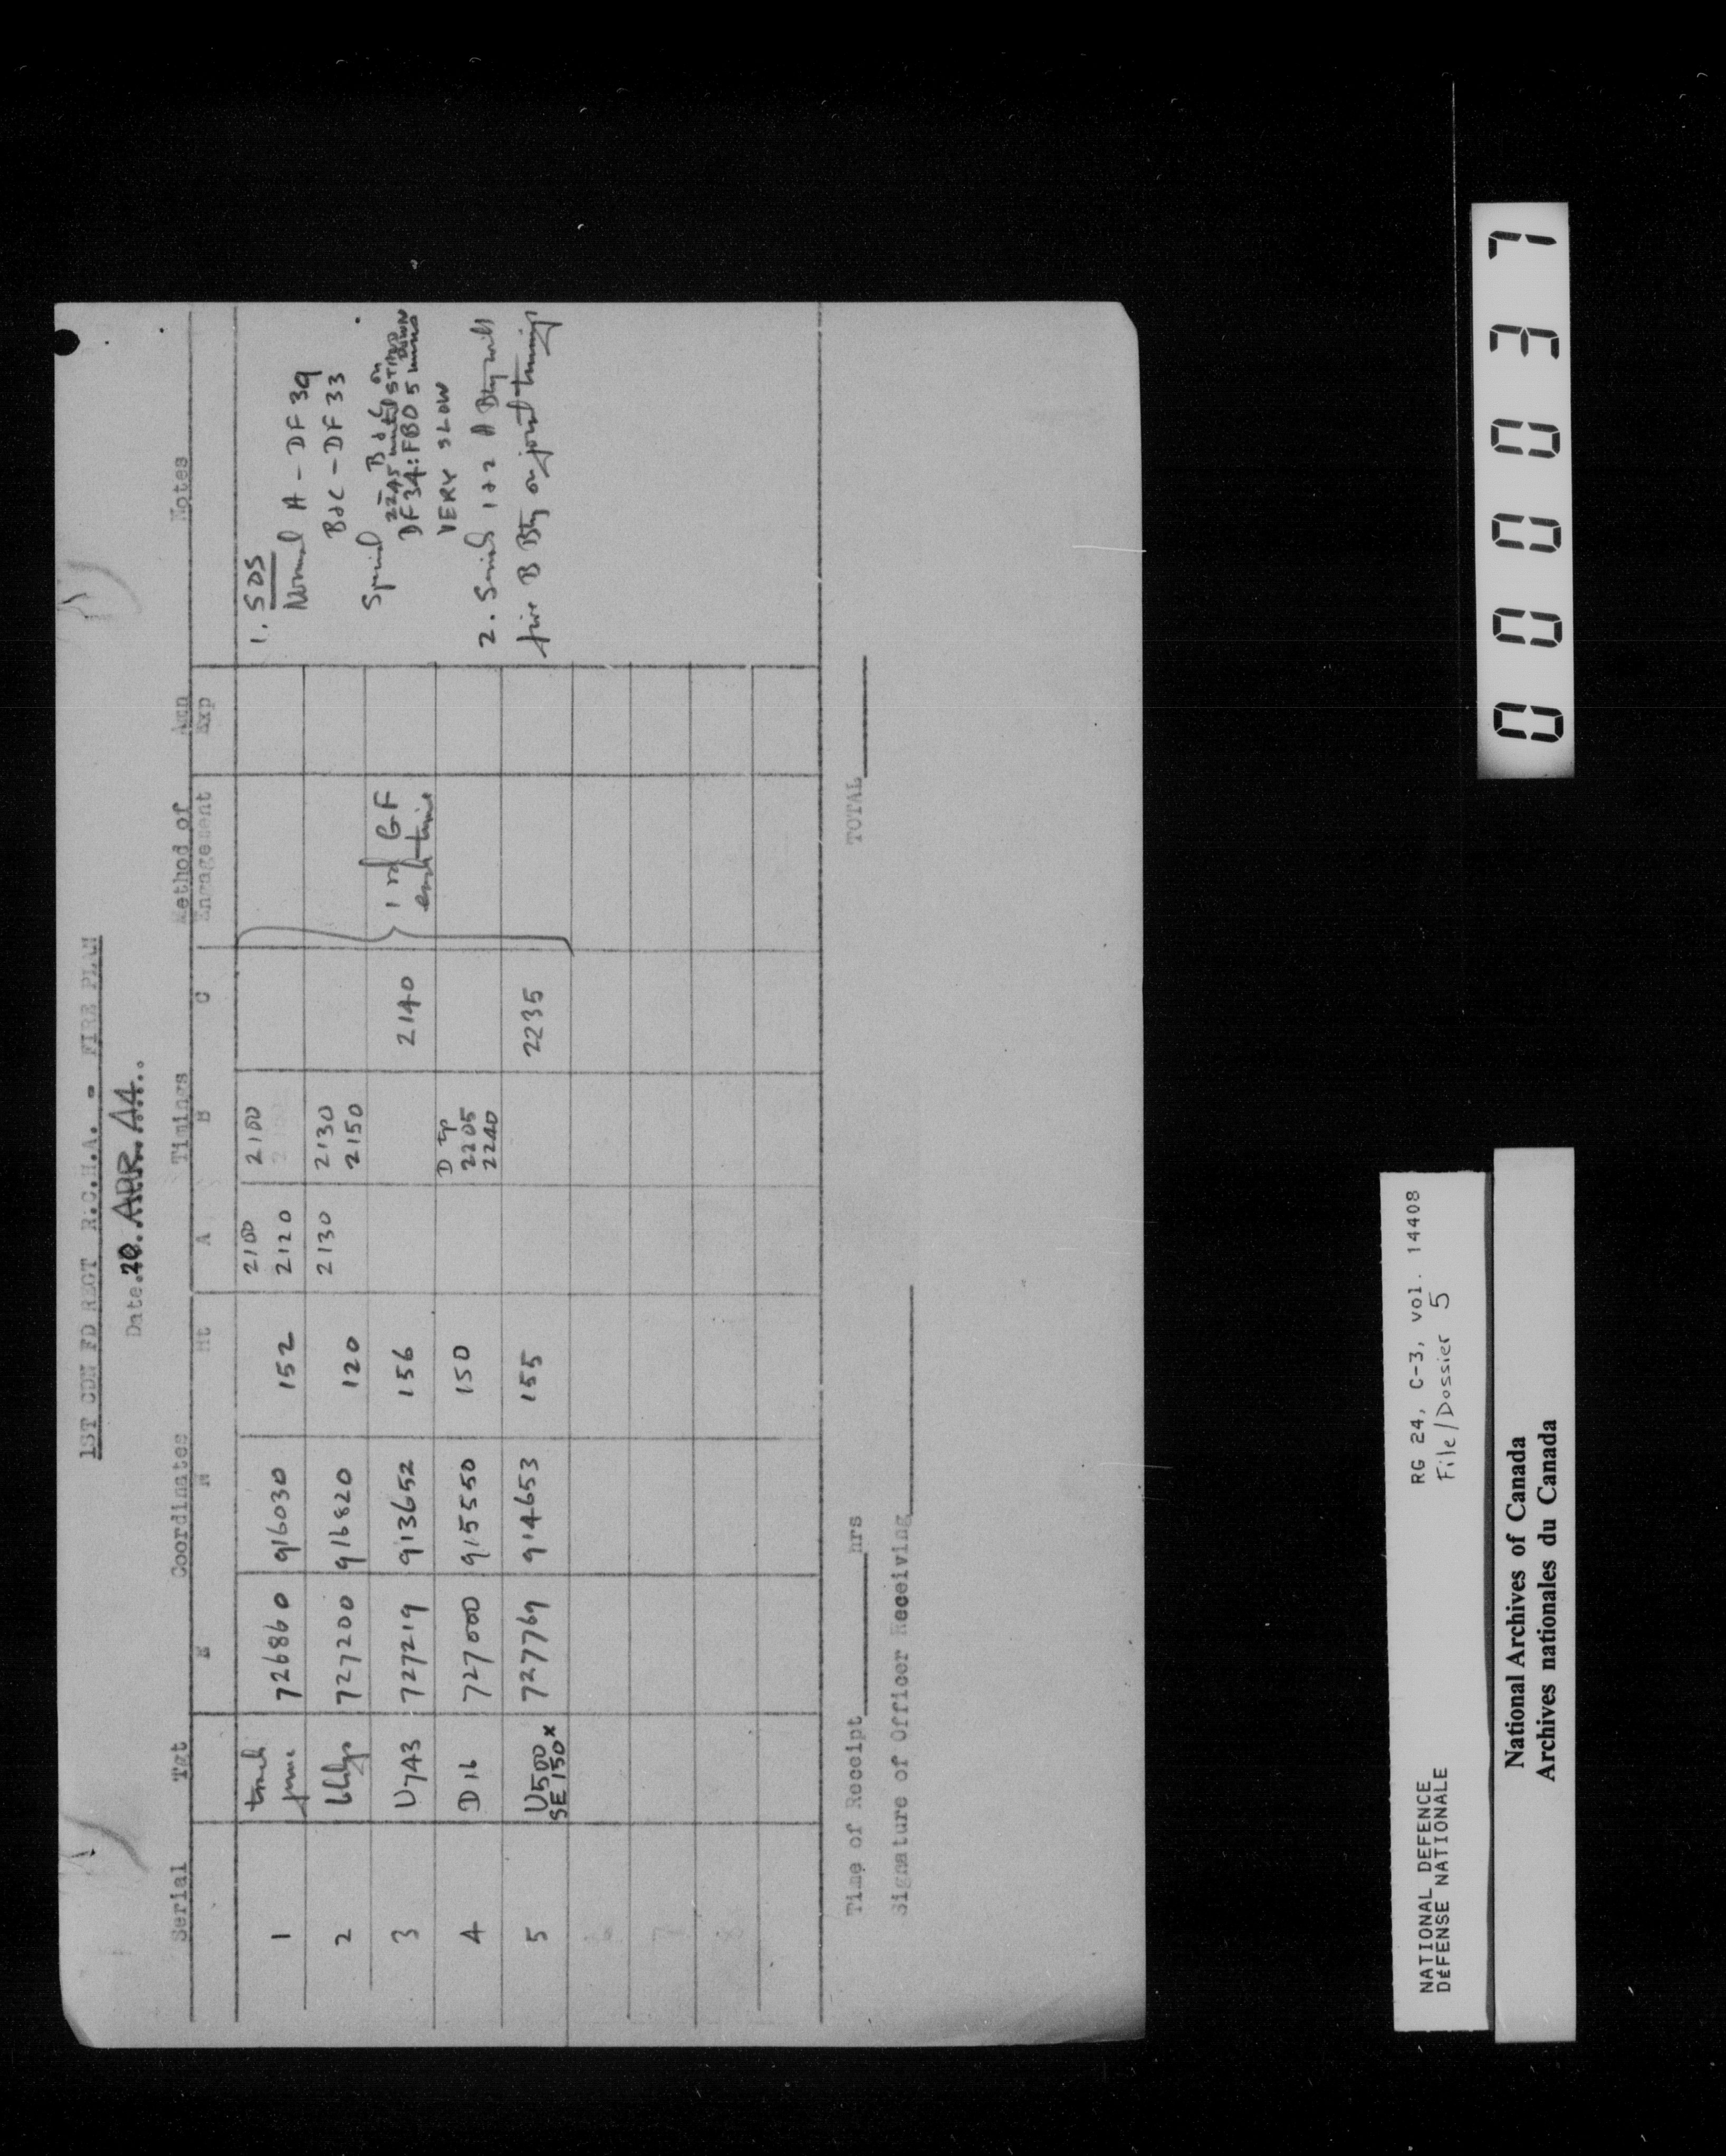 1ST CDN FD REGT R.C.H.A. - FIRE PLAN
Date.20.APR.44..
Serial Tgt Coordinates Timings Method of Amn Notes
E N Ht A B C Engagement Exp
1 track junc 726860 916030 152 2100 2120 2100
2 bldgs 727200 916820 120 2130 2130 2150
3 U743 727219 913652 156 2140
4 D16 727000 915550 150 D tp 2205 2240
5 U500 SE 150x 727769 914653 155 2235
1 rd GF
each time
1. SOS
Normal A - DF 39
B & C - DF 33
Special - B & C on
2245 until STAND DOWN
DF 34: FBO 5 mins
VERY SLOW
2. Serials 1 & 2 A Bty will
fire B Bty on joint timings
Time of Receipt hrs TOTAL
Signature of Officer Receiving
00037
NATIONAL DEFENCE RG 24, C-3, vol. 14408
DÉFENSE NATIONALE File/Dossier 5
National Archives of Canada
Archives nationales du Canada